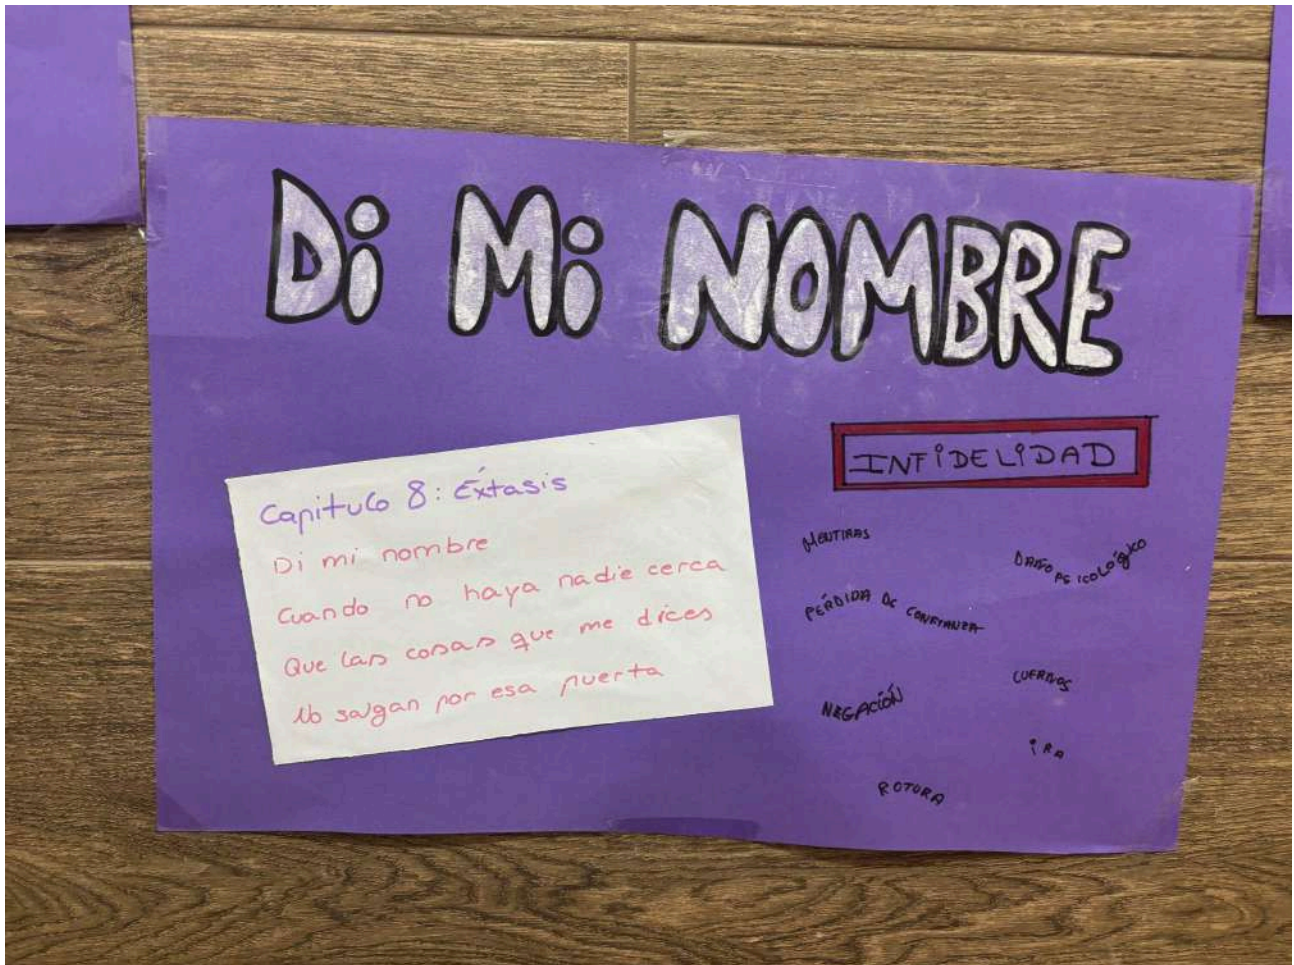 Di Mi NOMBRE
Capitulo 8: Éxtasis
Di mi nombre
Cuando no haya nadie cerca
Que las cosas que me dices
No salgan por esa puerta
INFIDELIDAD
MENTIRAS
DAÑO PSICOLÓGICO
PÉRDIDA DE CONFIANZA
CUERNOS
NEGACIÓN
IRA
ROTURA